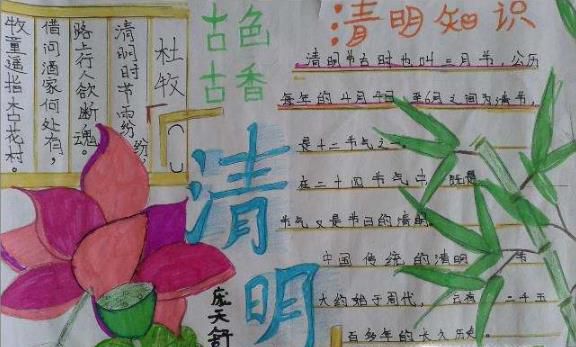 古色
古香
杜牧
清明时节雨纷纷，
路上行人欲断魂。
借问酒家何处有，
牧童遥指杏花村。
清明
庞天舒
清明知识
清明节古时也叫三月节，公历
每年的 月 日 至6日之间为清节，
是十二节气之一。
在二十四节气中，既是
节气又是节日的清明
中国传统的清明 节
大约始于周代， 已有二千五
百多年的 久历史。